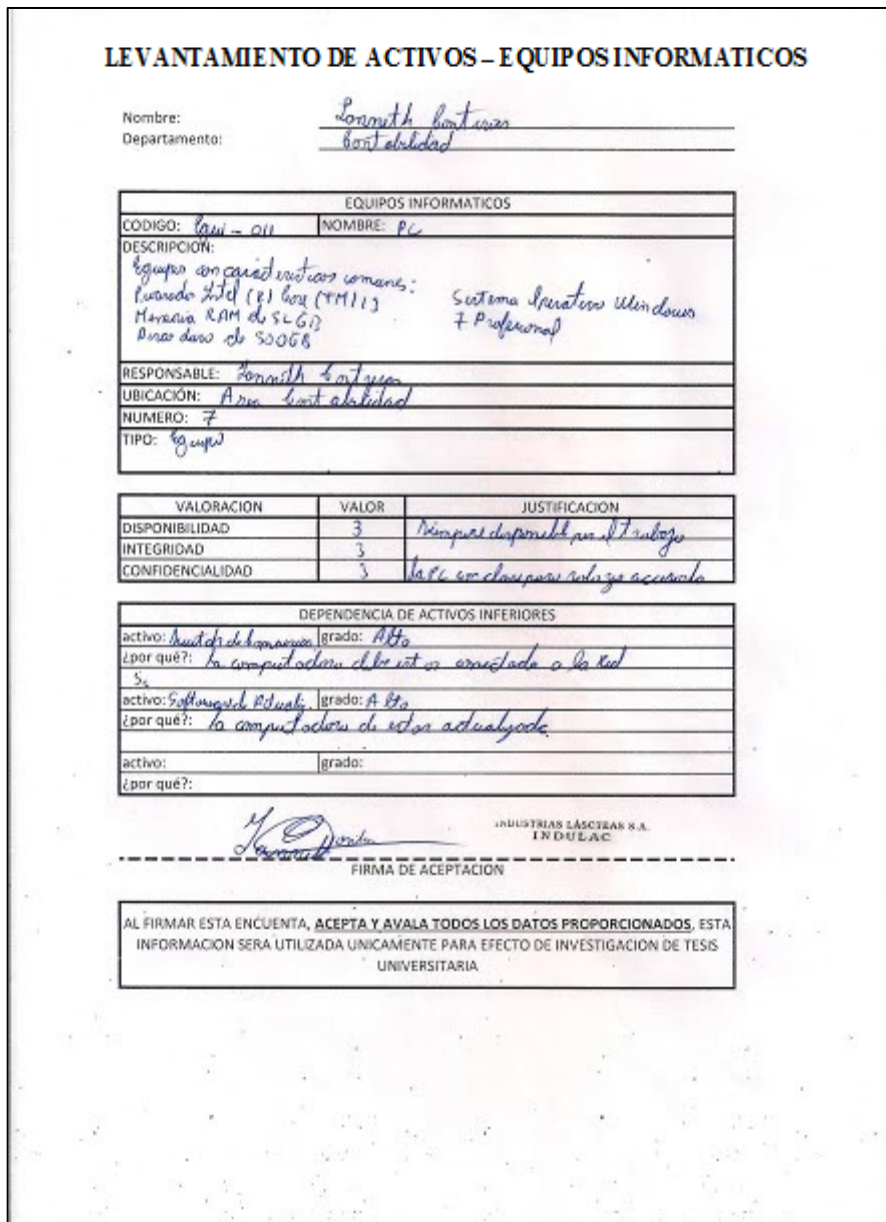 LEVANTAMIENTO DE ACTIVOS – EQUIPOS INFORMATICOS
Nombre:
Departamento: Contabilidad
EQUIPOS INFORMATICOS
CODIGO: Equi - 011 NOMBRE: PC
DESCRIPCION:
Equipos con caracteristicas comunes:
Intel (R) Core (TM) i3
Memoria RAM de
Disco duro de 500GB
Sistema Operativo Windows
7 Profesional
RESPONSABLE:
UBICACIÓN: Area Contabilidad
NUMERO: 7
TIPO: Equipo
VALORACION VALOR JUSTIFICACION
DISPONIBILIDAD 3 Siempre disponible el trabajo
INTEGRIDAD 3
CONFIDENCIALIDAD 3 la PC con clave para
DEPENDENCIA DE ACTIVOS INFERIORES
activo: Switch de grado: Alto
¿por qué?: la computadora debe estar conectada a la red
activo: Software de grado: Alto
¿por qué?: la computadora de estar actualizada
activo: grado:
¿por qué?:
INDUSTRIAS LÁCTEAS S.A.
INDULAC
FIRMA DE ACEPTACION
AL FIRMAR ESTA ENCUENTA, ACEPTA Y AVALA TODOS LOS DATOS PROPORCIONADOS, ESTA
INFORMACION SERA UTILIZADA UNICAMENTE PARA EFECTO DE INVESTIGACION DE TESIS
UNIVERSITARIA